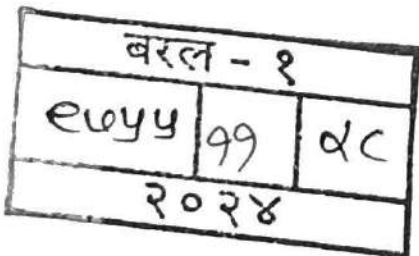 बरल - १
९७५५ ११ ४८
२०२४